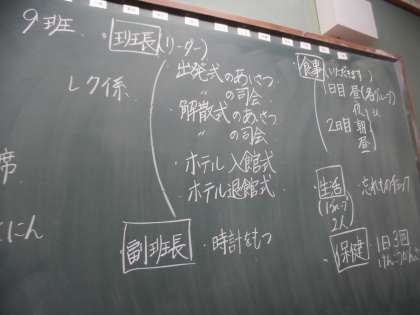 9班
レク係
席
にん
班長(リーダー)
出発式のあいさつ
〃 の司会
解散式のあいさつ
〃 の司会
・ホテル入館式
ホテル退館式
副班長 ・時計をもつ
食事(いただきます)
1日目 昼(各グループ)
夜
2日目 朝
昼
生活 ・忘れものチェック
(1グループ
2人)
保健 ・1日3回
けんこうかんさつ